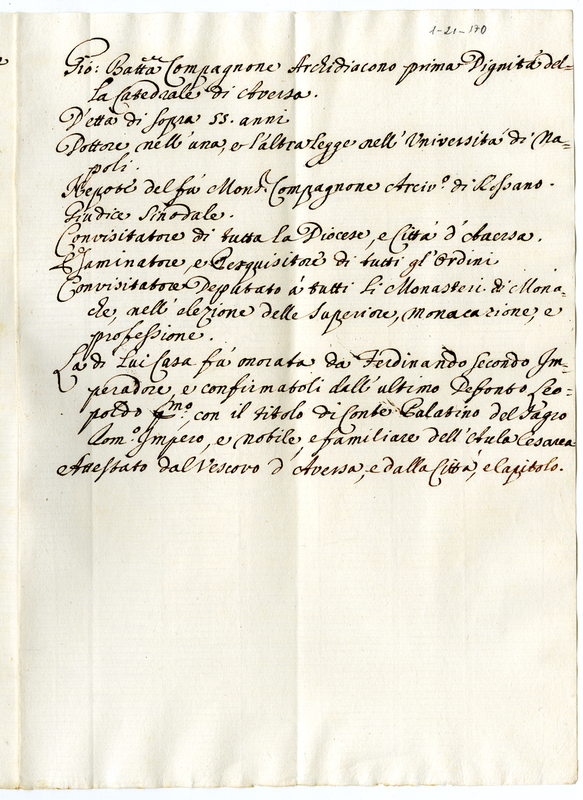 1-21-170
Gio: Batta Compagnone Archidiacono prima Dignità del=
la Catedrale di Aversa.
D'età di sopra 55. anni
Dottore nell'una, e l'altra legge nell'Università di Na=
poli.
Nepote del fù Mons.r Compagnone Arciv.o di Rossano.
Giudice Sinodale.
Convisitatore di tutta la Diocese, e Città d'Aversa.
Esaminatore, e Perquisitore di tutti gl'Ordini
Convisitatore Deputato á tutti li Monasteri di Mona=
che, nell'elezione delle Superiore, Monacazione, e
professione.
La di Lui Casa fú onorata da Ferdinando secondo Im=
peradore, e confirmatoli dall'ultimo Defonto Leo=
poldo P.mo, con il titolo di Conte Palatino del Sagro
Rom.o Impero, e nobile, e familiare dell'Aula Cesarea
Attestato dal Vescovo d'Aversa, e dalla Città, e Capitolo.